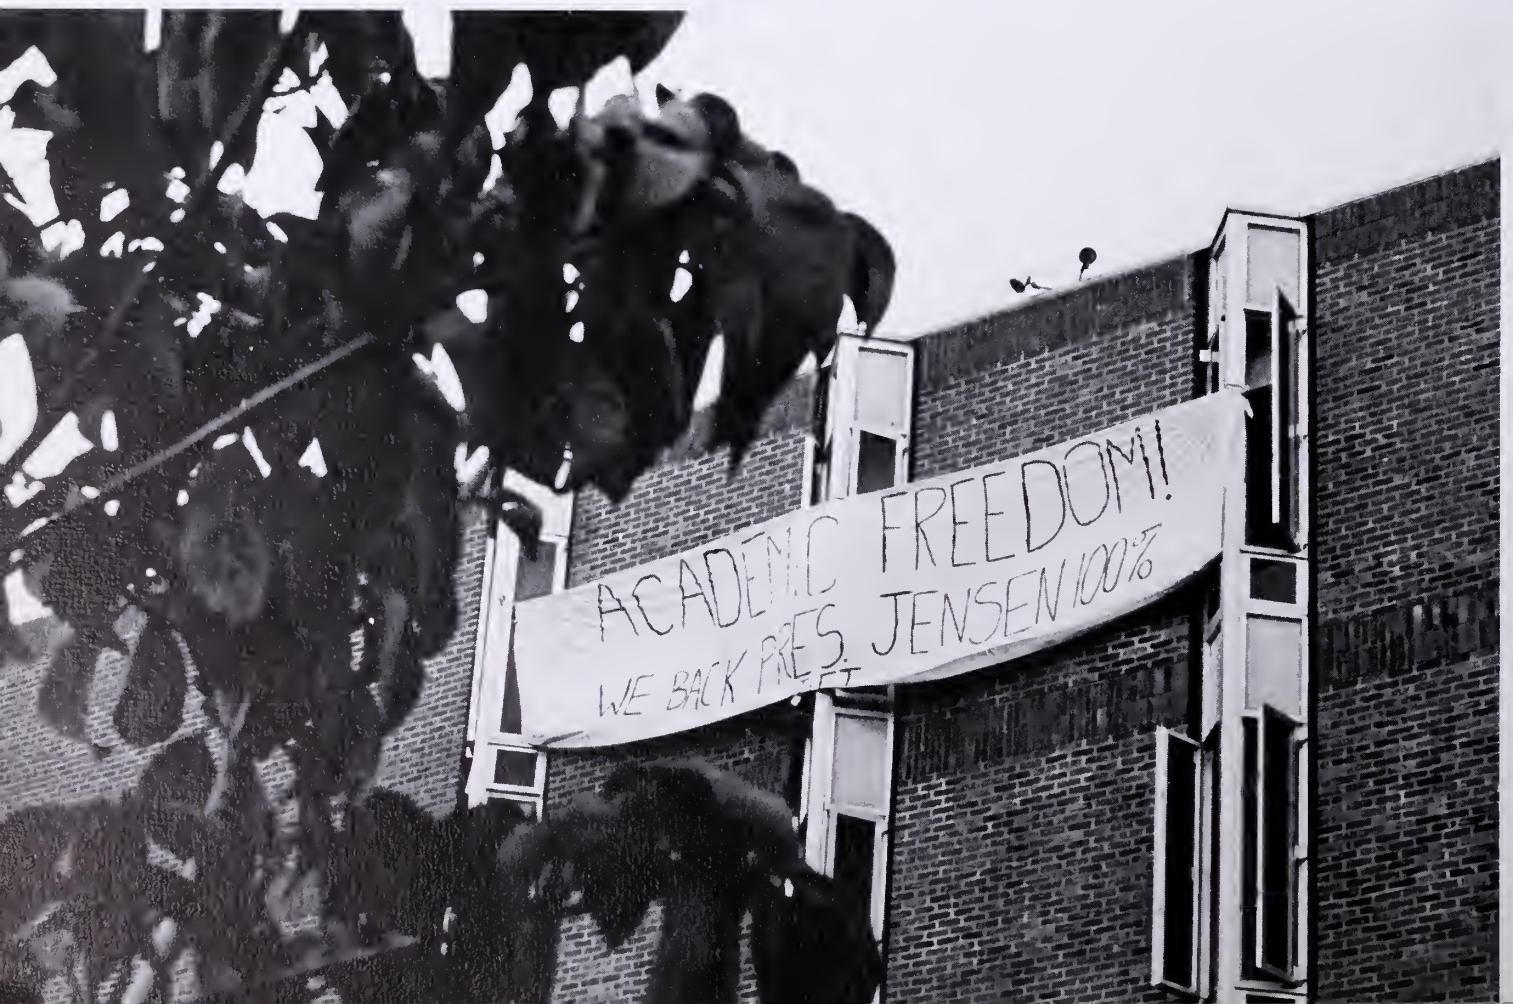 ACADEMIC FREEDOM!
WE BACK PRES. JENSEN 100%